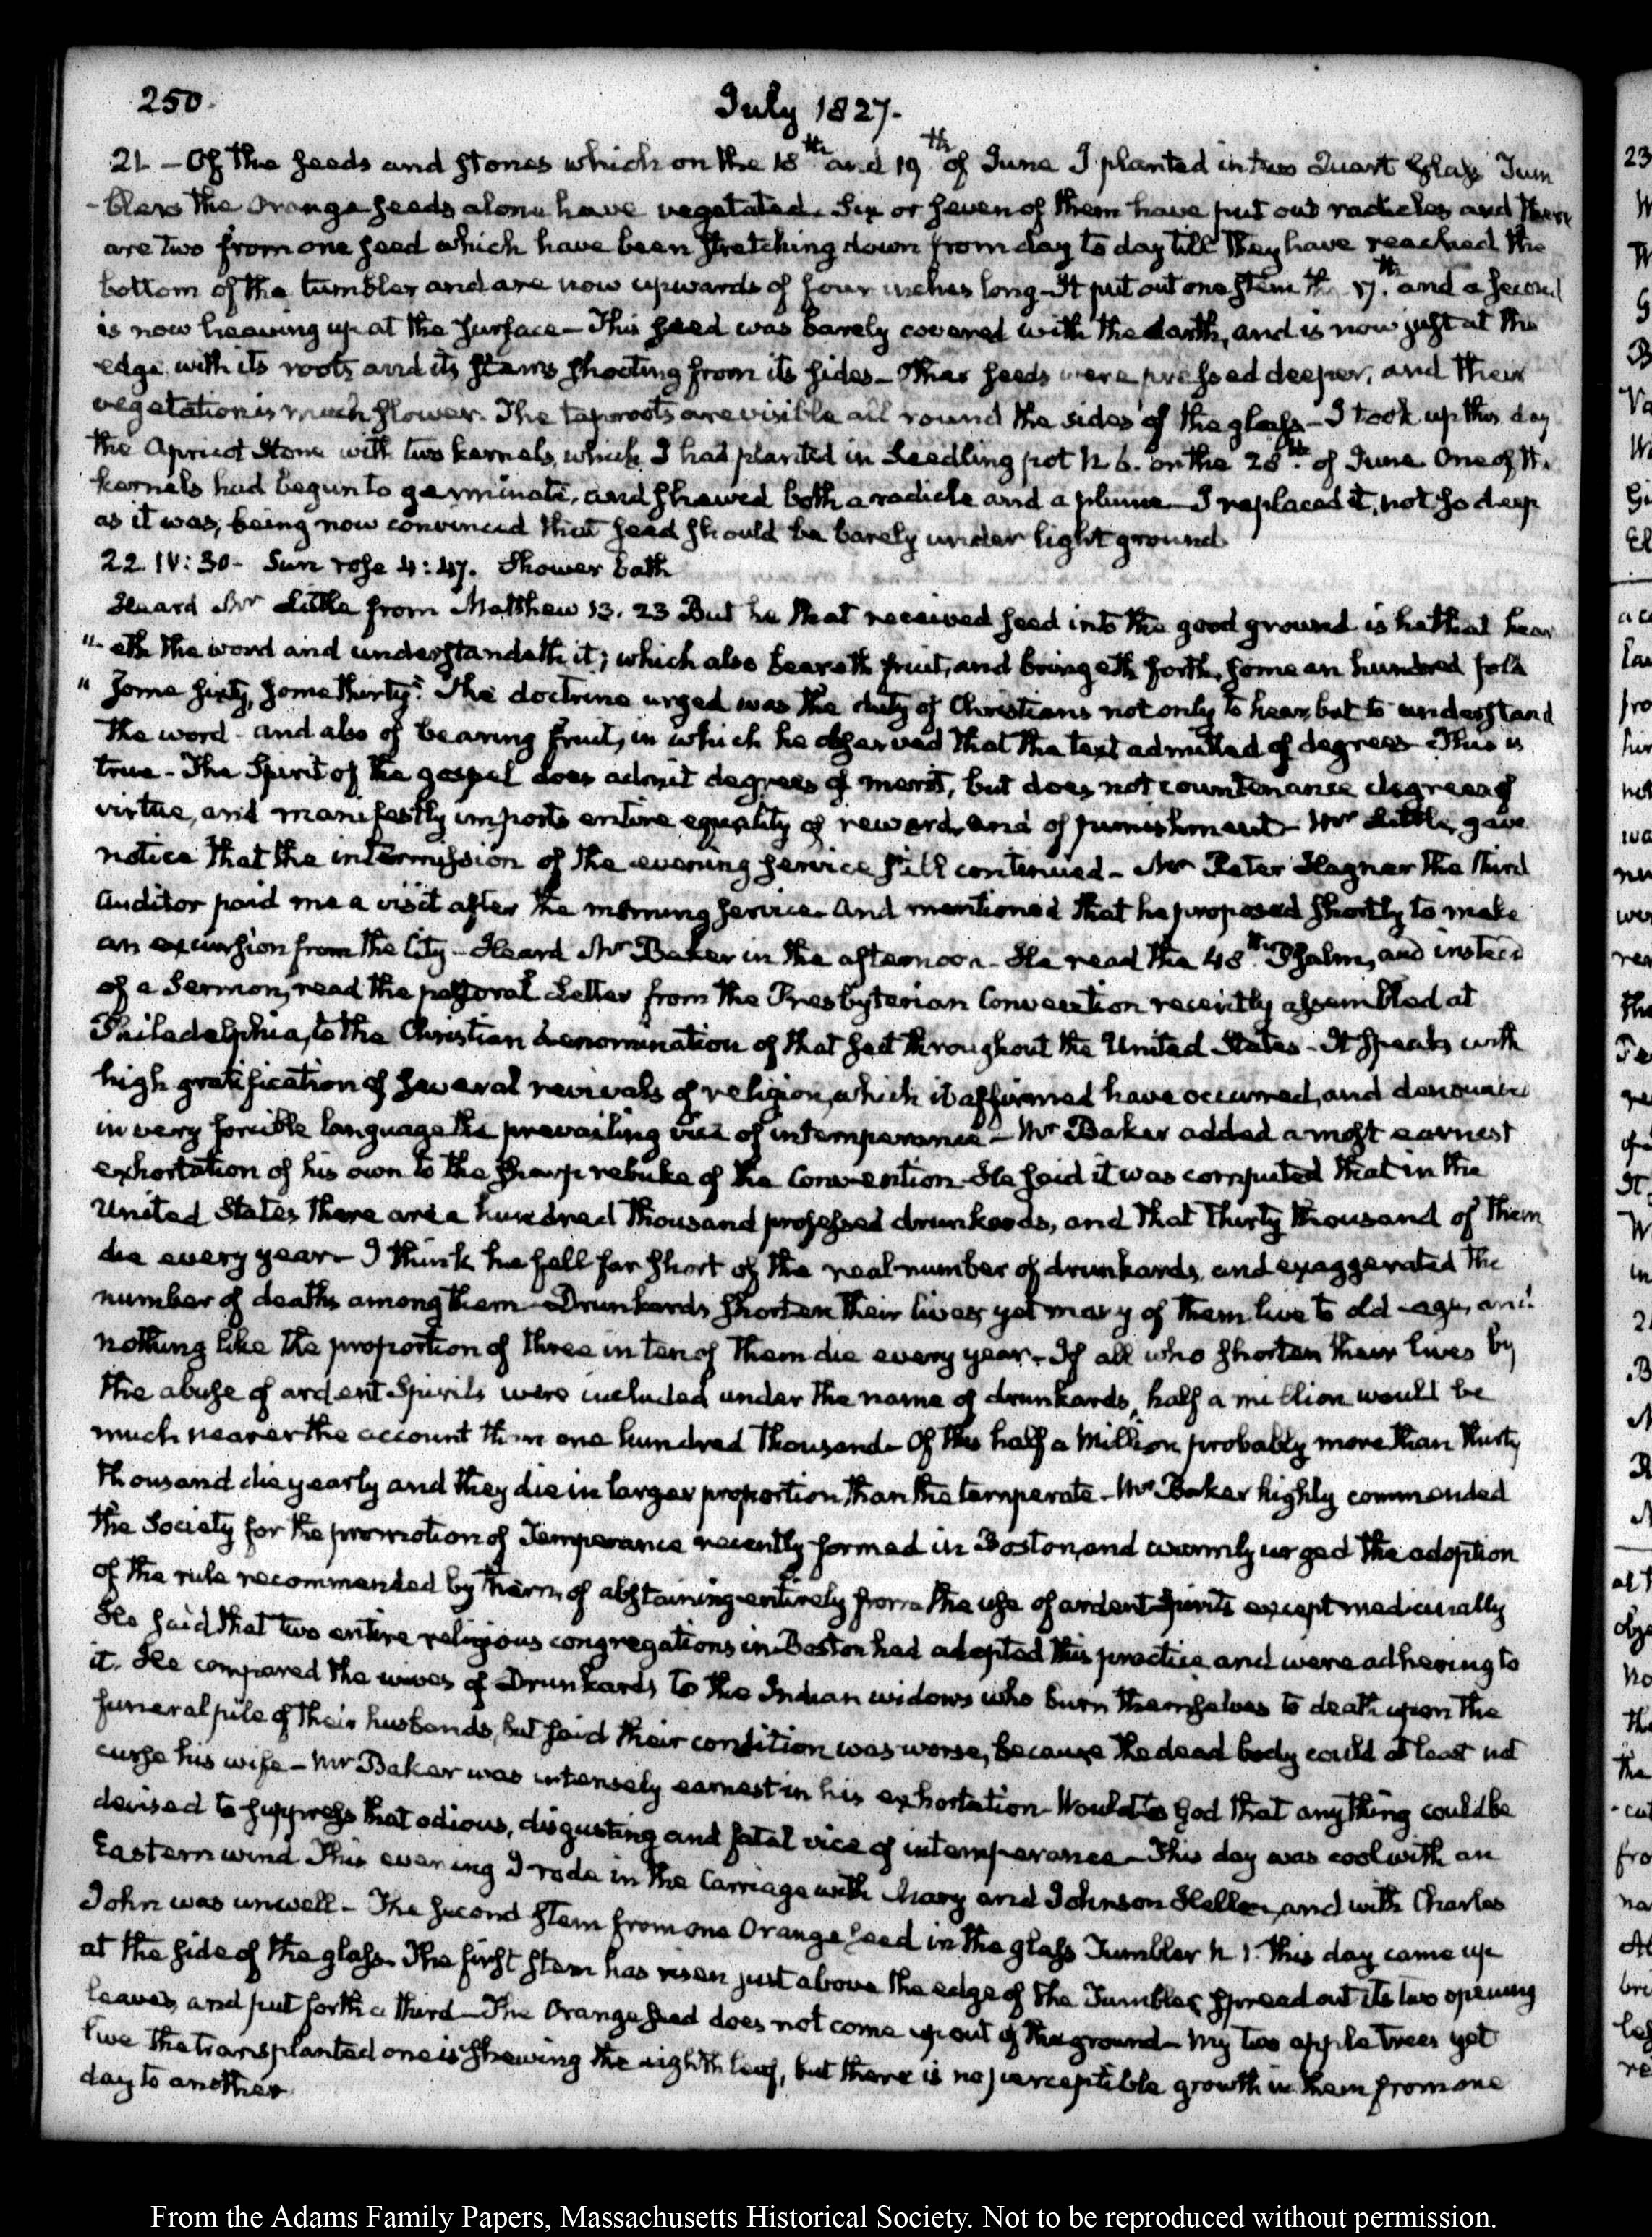 250.
July 1827.
21 - Of the seeds and stones which on the 18th and 19th of June I planted in two Quart Glass Tum
-blers the Orange seeds alone have vegetated. Six or seven of them have put out radicles and there
are two from one seed which have been stretching down from day to day till they have reached the
bottom of the tumbler and are now upwards of four inches long - It put out one stem the 17th and a second
is now heaving up at the surface - This seed was barely covered with the earth, and is now just at the
edge with its roots and its stems shooting from its sides - Other seeds were pressed deeper, and their
vegetation is much slower. The taproots are visible all round the sides of the glass - I took up this day
the Apricot Stone with two kernels, which I had planted in Seedling pot N. 6. on the 28th of June. One of the
kernels had begun to germinate, and shewed both a radicle and a plume - I replaced it, not so deep
as it was, being now convinced that seed should be barely under light ground.
22. IV:30 - Sun rose 4:47. Shower bath
Heard Mr Little from Matthew 13. 23 But he that received seed into the good ground is he that hear
"-eth the word and understandeth it; which also beareth fruit, and bringeth forth, some an hundred fold
" some sixty, some thirty." The doctrine urged was the duty of Christians not only to hear, but to understand
the word - and also of bearing fruit, in which he observed that the text admitted of degrees - This is
true - The Spirit of the gospel does admit degrees of merit, but does not countenance degrees of
virtue, and manifestly imports entire equality of reward, and of punishment - Mr Little gave
notice that the intermission of the evening service still continued - Mr Peter Hagner the third
Auditor paid me a visit after the morning service. And mentioned that he proposed shortly to make
an excursion from the City - Heard Mr Baker in the afternoon - He read the 48th Psalm, and instead
of a Sermon, read the pastoral Letter from the Presbyterian Convention recently assembled at
Philadelphia, to the Christian denomination of that sect throughout the United States - It speaks with
high gratification of several revivals of religion, which it affirmed have occurred, and denounced
in very forcible language the prevailing vice of intemperance - Mr Baker added a most earnest
exhortation of his own to the sharp rebuke of the Convention - He said it was computed that in the
United States there are a hundred thousand professed drunkards, and that thirty thousand of them
die every year - I think he fell far short of the real number of drunkards, and exaggerated the
number of deaths among them - Drunkards shorten their lives, yet many of them live to old age, and
nothing like the proportion of three in ten of them die every year - If all who shorten their lives by
the abuse of ardent Spirits were included under the name of drunkards, half a million would be
much nearer the account than one hundred thousand - Of this half a Million, probably more than thirty
thousand die yearly and they die in larger proportion than the temperate - Mr Baker highly commended
the Society for the promotion of Temperance recently formed in Boston, and warmly urged the adoption
of the rule recommended by them, of abstaining entirely from the use of ardent Spirits except medicinally
He said that two entire religious congregations in Boston had adopted this practice and were adhering to
it. He compared the wives of Drunkards to the Indian widows who burn themselves to death upon the
funeral pile of their husbands, but said their condition was worse, because the dead body could at least not
curse his wife - Mr Baker was intensely earnest in his exhortation - Would to God that anything could be
devised to suppress that odious, disgusting and fatal vice of intemperance - This day was cool with an
Eastern wind This evening I rode in the Carriage with Mary and Johnson Hellen, and with Charles
John was unwell - The second stem from one Orange seed in the glass Tumbler N. 1. this day came up
at the side of the glass. The first stem has risen just above the edge of the Tumbler, spread out its two opening
leaves, and put forth a third - The Orange seed does not come up out of the ground - My two apple trees yet
live The transplanted one is shewing the eighth leaf, but there is no perceptible growth in them from one
day to another
From the Adams Family Papers, Massachusetts Historical Society. Not to be reproduced without permission.